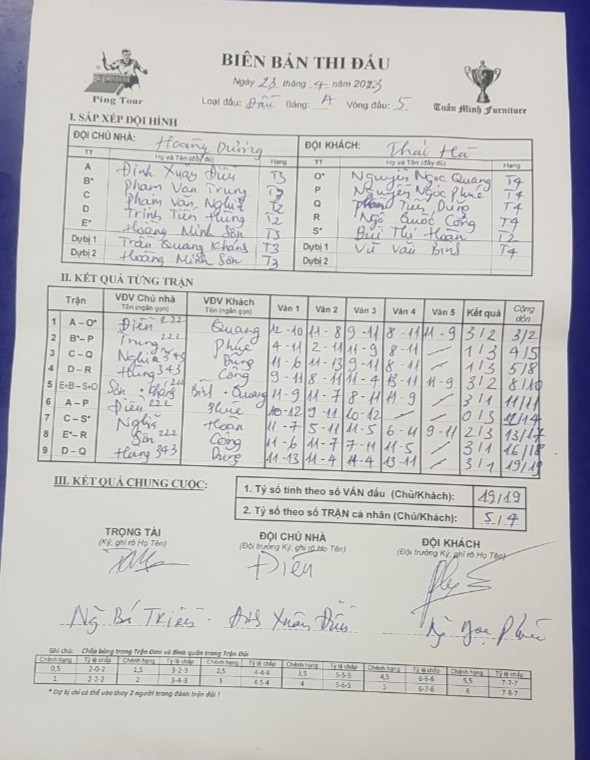 BIÊN BẢN THI ĐẤU
Ping Tour
Ngày 23 tháng 4 năm 2023
Loạt đấu: Đấu Bảng: A Vòng đấu: 5
Tuấn Minh Furniture
I. SẮP XẾP ĐỘI HÌNH
ĐỘI CHỦ NHÀ: Hoàng Dương ĐỘI KHÁCH: Thái Hà
TT Họ và Tên (đầy đủ) Hạng TT Họ và Tên (đầy đủ) Hạng
A Đinh Xuân Điền T3 O* Nguyễn Ngọc Quang T4
B* Phạm Văn Trung T3 P Nguyễn Ngọc Phúc T4
C Phạm Văn Nghĩa T2 Q Phạm Tiến Dũng T4
D Trịnh Tiến Hưng T2 R Ngô Quốc Công T4
E* Hoàng Minh Sơn T3 S* Bùi Thị Hoan T2
Dự bị 1 Trần Quang Khang T3 Dự bị 1 Vũ Văn Bình T4
Dự bị 2 Hoàng Minh Sơn T3 Dự bị 2
II. KẾT QUẢ TỪNG TRẬN
Trận VĐV Chủ nhà VĐV Khách Ván 1 Ván 2 Ván 3 Ván 4 Ván 5 Kết quả Cộng dồn
Tên (ngắn gọn) Tên (ngắn gọn)
1 A – O* Điền 222 Quang 12-10 11-8 9-11 8-11 11-9 3/2 3/2
2 B* – P Trung 222 Phúc 4-11 2-11 11-9 8-11 1/3 4/5
3 C – Q Nghĩa 343 Dũng 11-6 11-13 9-11 8-11 1/3 5/8
4 D – R Hưng 343 Công 9-11 8-11 11-4 13-11 11-9 3/2 8/10
5 E+B – S+O Sơn + Khang 222 Bình + Quang 11-9 11-7 8-11 11-9 3/1 11/11
6 A – P Điền 222 Phúc 10-12 9-11 10-12 0/3 11/14
7 C – S* Nghĩa Hoan 11-7 5-11 11-5 6-11 9-11 2/3 13/17
8 E* – R Sơn 222 Công 11-6 11-7 7-11 11-5 3/1 16/18
9 D – Q Hưng 343 Dũng 11-13 11-4 11-4 13-11 3/1 19/19
III. KẾT QUẢ CHUNG CUỘC:
1. Tỷ số tính theo số VÁN đấu (Chủ/Khách): 19/19
2. Tỷ số theo số TRẬN cá nhân (Chủ/Khách): 5/4
TRỌNG TÀI ĐỘI CHỦ NHÀ ĐỘI KHÁCH
(Ký, ghi rõ Họ Tên) (Đội trưởng Ký, ghi rõ Họ Tên) (Đội trưởng Ký, ghi rõ Họ Tên)
Điền
Ng Bá Triển Đinh Xuân Điền Ng Ngọc Phúc
Ghi chú: Chấp bóng trong Trận Đơn và Bình quân trong Trận Đôi
Chênh hạng Tỷ lệ chấp Chênh hạng Tỷ lệ chấp Chênh hạng Tỷ lệ chấp Chênh hạng Tỷ lệ chấp Chênh hạng Tỷ lệ chấp Chênh hạng Tỷ lệ chấp
0,5 2-0-2 1,5 3-2-3 2,5 4-4-4 3,5 5-5-5 4,5 6-6-6 5,5 7-7-7
1 2-2-2 2 3-4-3 3 4-5-4 4 5-6-5 5 6-7-6 6 7-8-7
* Dự bị chỉ có thể vào thay 2 người trong đánh trận đôi !